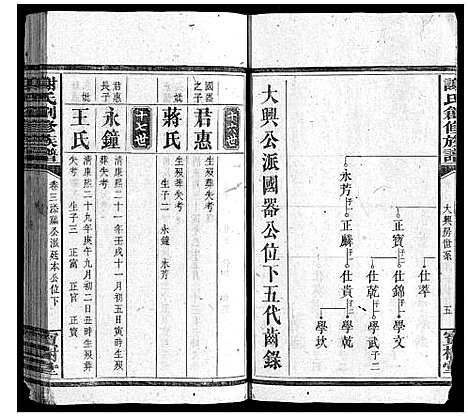 謝氏創修族譜
大興房世系
五
寶樹堂
仕萃
正寶 仕錦 學文
仕乾 學武 子二
永芳 正麟 仕貴 學乾
學坎
大興公派國器公位下五代齒錄
十六世
國器之子 君惠 生歿葬失考
妣 蔣氏 生歿葬失考
生子二 永鐘 永芳
十七世
君惠長子 永鐘 清康熙二十一年壬戌十一月初五日寅時生歿
葬失考
妣 王氏 清康熙二十九年庚午九月初二日丑時生歿葬
失考 生子三 正富 正官 正寶
謝氏創修族譜
卷三 公派廷本公位下
寶樹堂